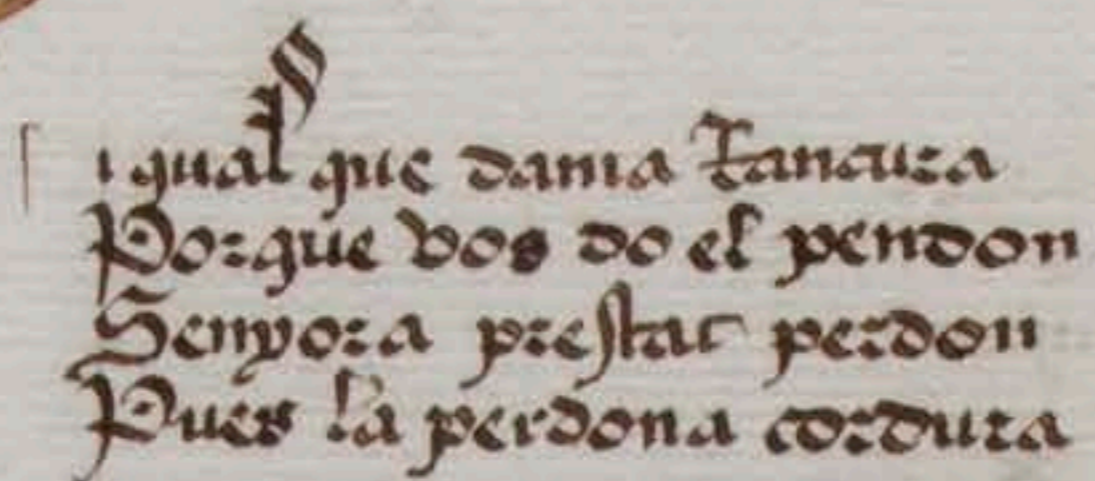 igual que dama
Porque vos do el pendon
Senyora prestat perdon
Pues la perdona cordura